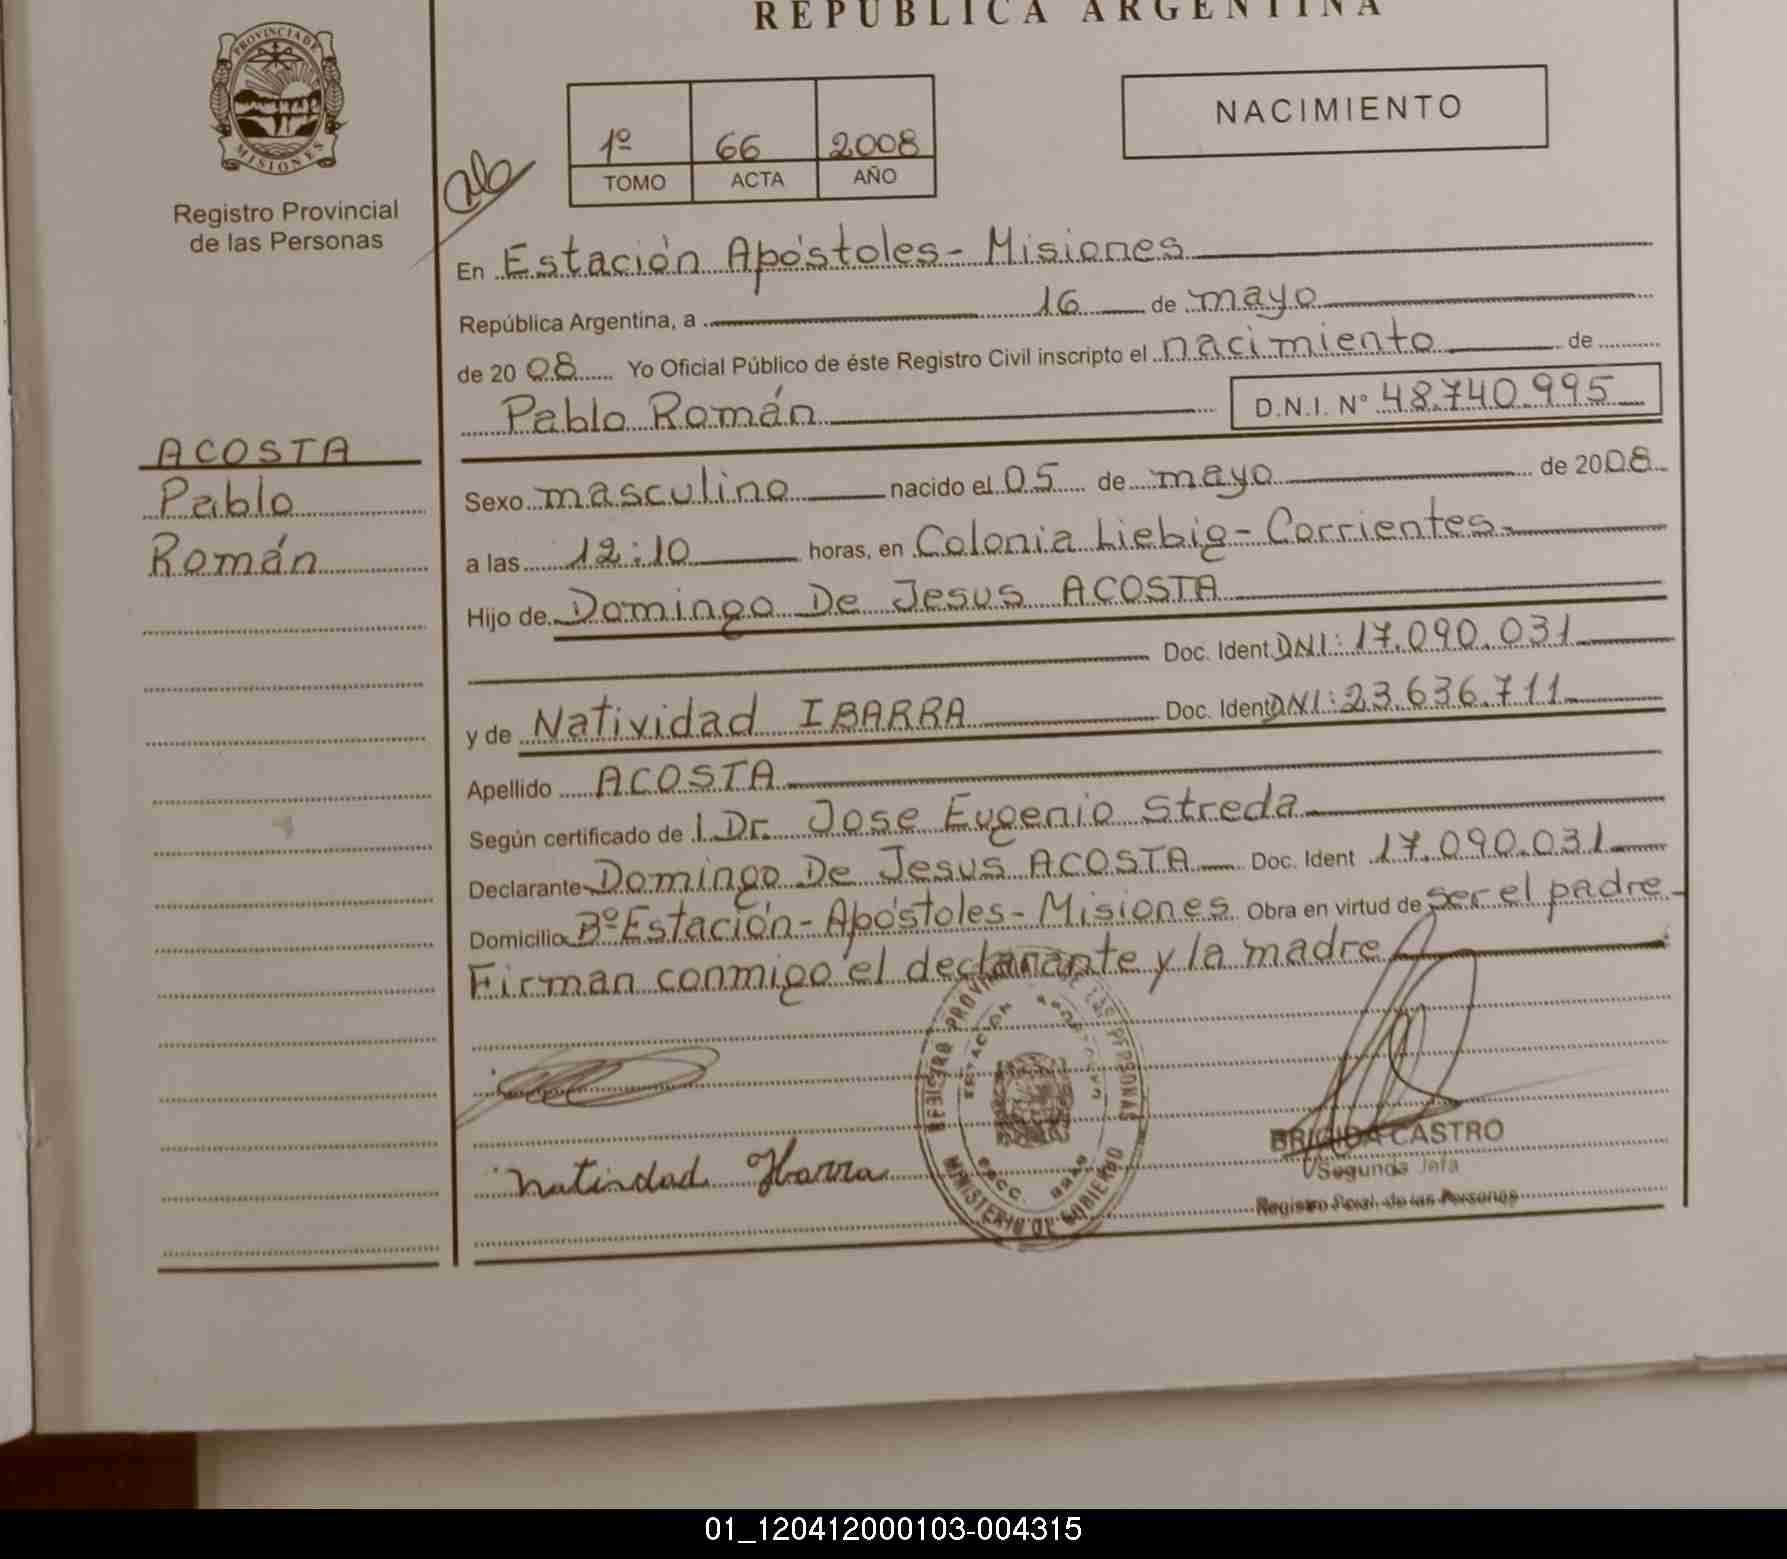 REPUBLICA ARGENTINA
PROVINCIA DE
MISIONES
Registro Provincial
de las Personas
1º 66 2008
TOMO ACTA AÑO
NACIMIENTO
En Estación Apóstoles - Misiones
República Argentina, a 16 de mayo
de 20 08 Yo Oficial Público de éste Registro Civil inscripto el nacimiento de
Pablo Román D.N.I. Nº 48.740.995
ACOSTA
Pablo
Román
Sexo masculino nacido el 05 de mayo de 2008
a las 12:10 horas, en Colonia Liebig - Corrientes
Hijo de Domingo De Jesus ACOSTA
Doc. Ident DNI: 17.090.031
y de Natividad IBARRA Doc. Ident DNI: 23.636.711
Apellido ACOSTA
Según certificado de l Dr. Jose Eugenio Streda
Declarante Domingo De Jesus ACOSTA Doc. Ident 17.090.031
Domicilio Bº Estación - Apóstoles - Misiones Obra en virtud de ser el padre -
Firman conmigo el declarante y la madre
Natividad Ibarra
BRIGIDA CASTRO
Segunda Jefa
Registro Pcial. de las Personas
MINISTERIO DE GOBIERNO
01_120412000103-004315